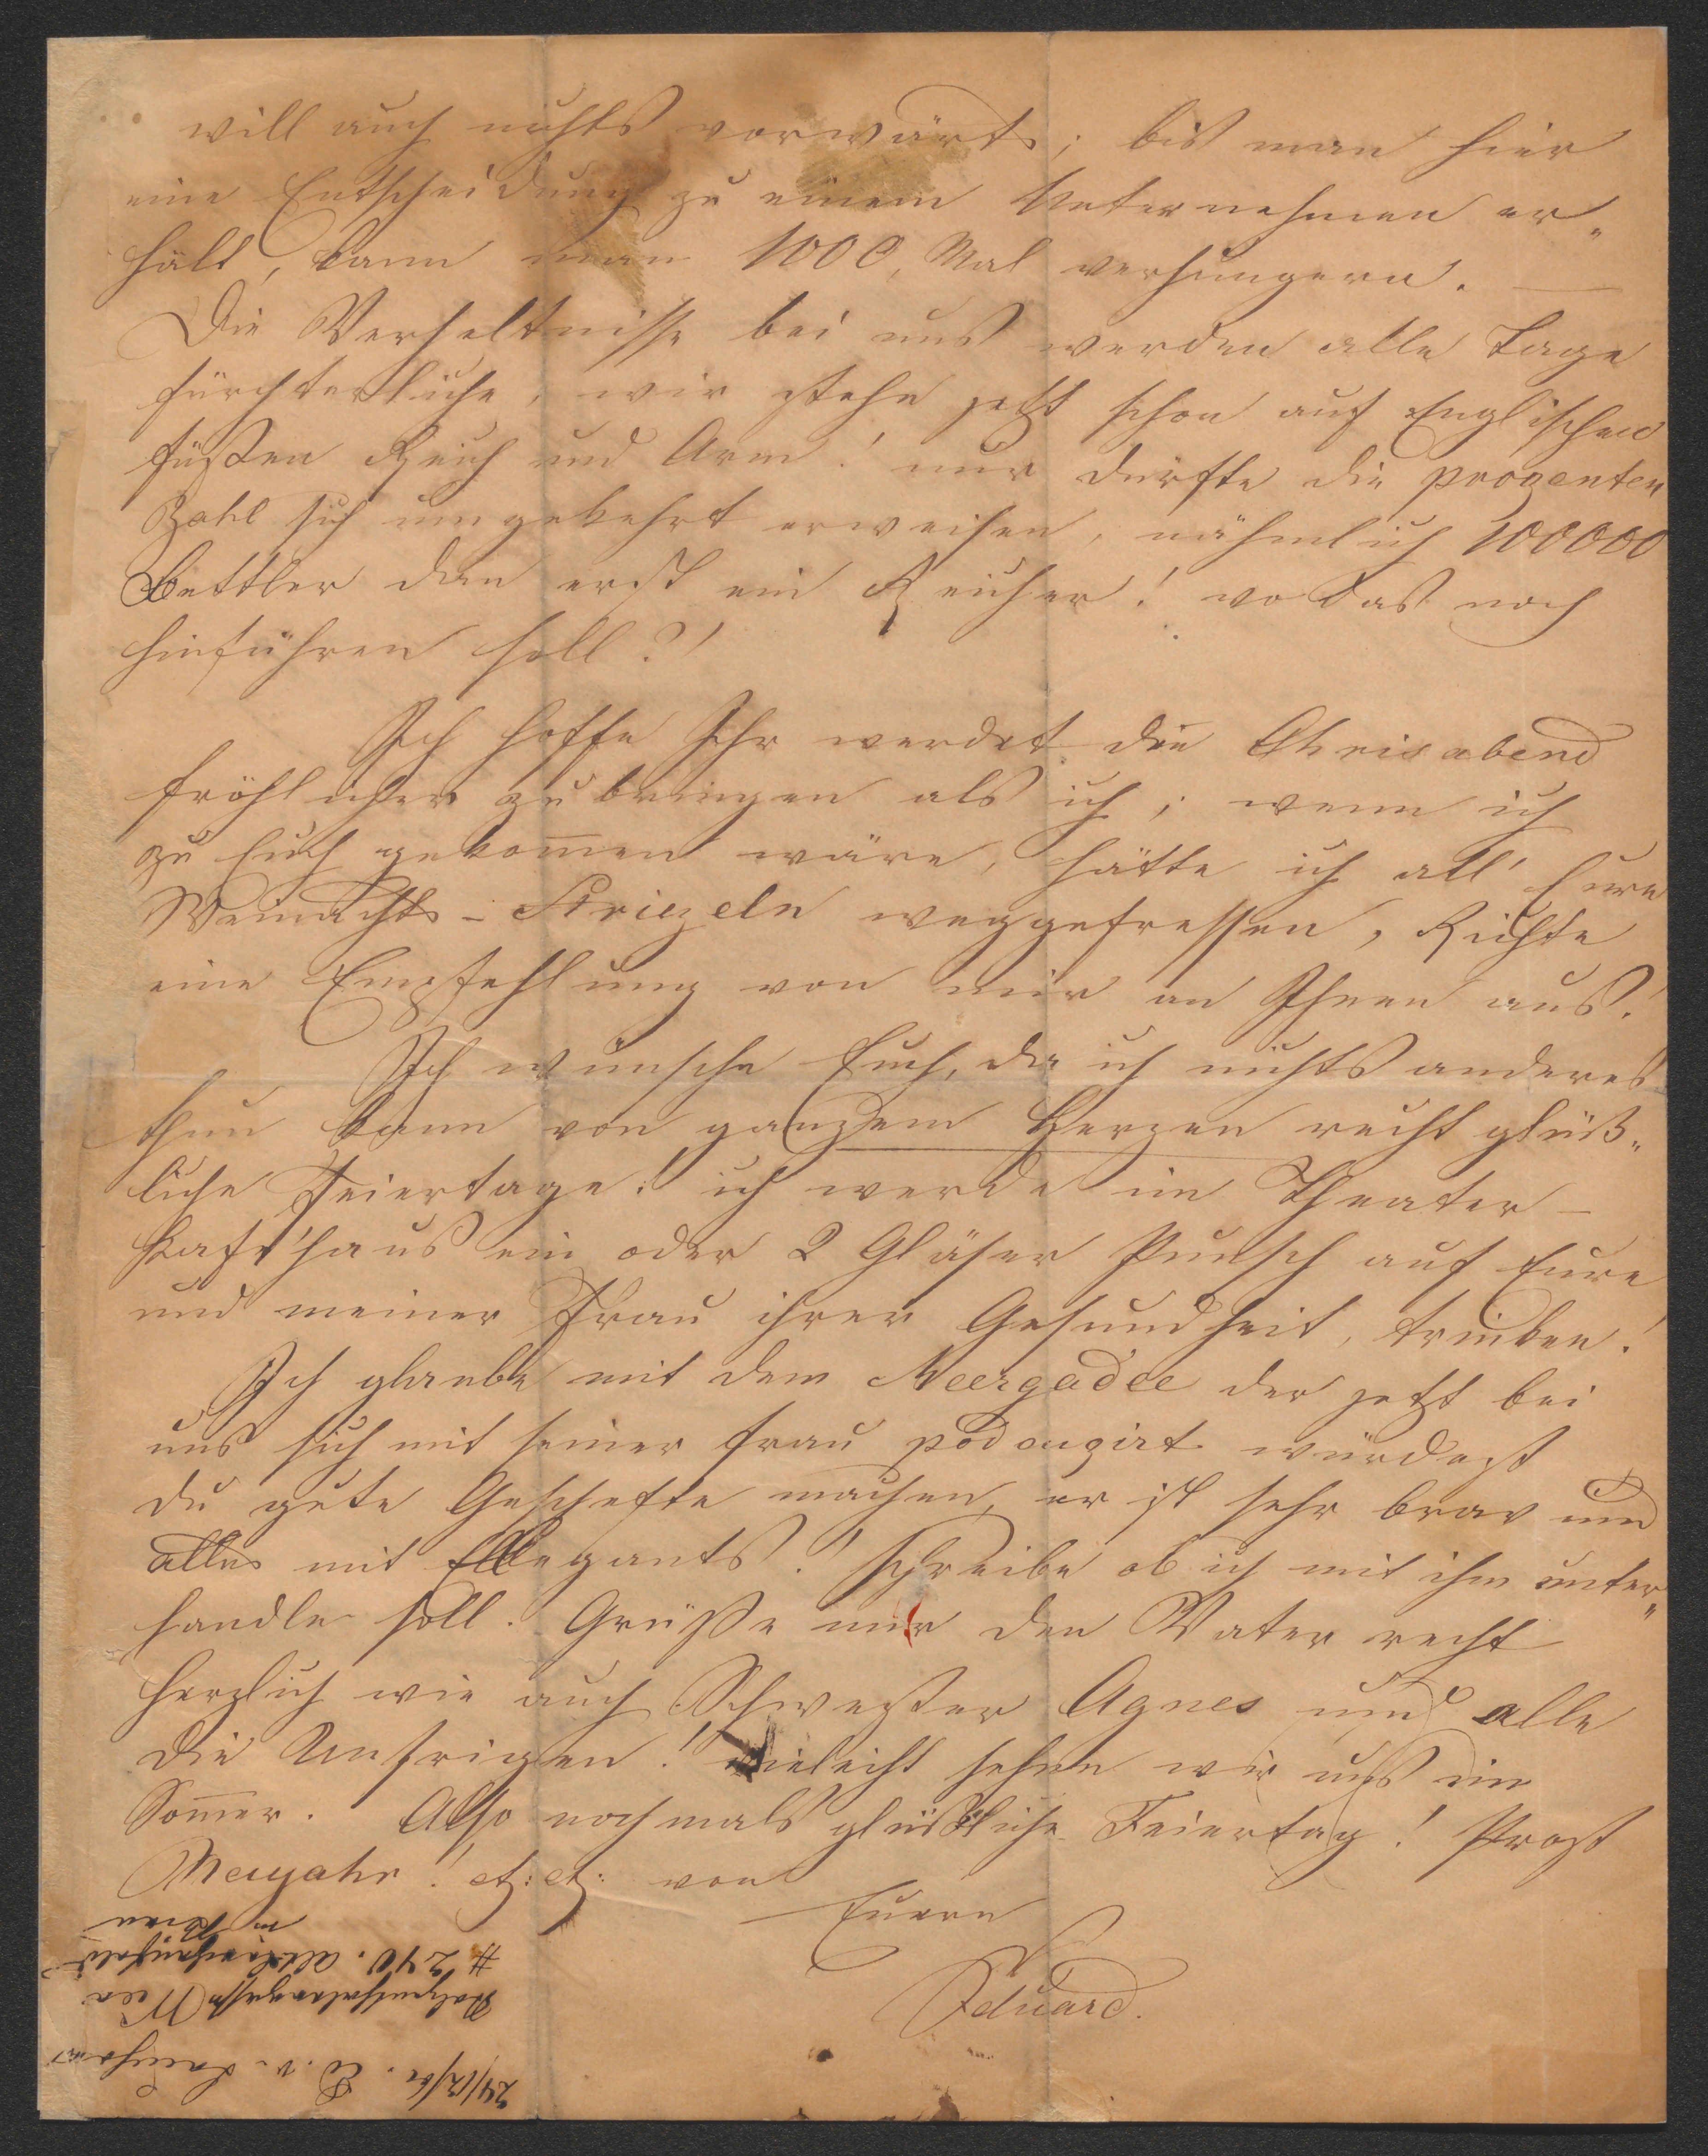 will auch nichts vorwärts; bis man hier
eine Entscheidung zu einem Unternehmen er„
hält, kann man 1000, Mal verhungern. —
Die Verheltnisse bei uns werden alle Tage
fürchterliche, wir stehe jetzt schon auf Englischen
füßen Reich und Arm! nur dürfte die prozenten
Zahl sich umgekehrt erweisen, nähmlich 100000
Bettler dan erst ein Reicher! wo das noch
hinführen soll?!
Ich hoffe Ihr werdet die Chrisabend
fröhlicher zubringen als ich; wenn ich
zu Euch gekomen wäre, hätte ich all' Eure
Weinachts-Striezeln weggefressen, Richte
eine Empfehlung von mir an Ihnen aus!
Ich wünsche Euch, da ich nichts anderes
thun kann von ganzem Herzen recht glück„
liche Feiertage! ich werde im Theater-
kaffé'haus ein oder 2 Gläser Punsch auf Eure
und meiner Frau ihrer Gesundheit, trinken!
Ich glaube mit dem der jetzt bei
uns sich mit seiner Frau würdest
du gute Geschefte machen, er ist sehr brav und
alles mit Ellegants! schreibe ob ich mit ihm unter„
handle soll. Grüße mir den Vater recht
herzlich wie auch Schwester Agnes und alle
die Unsrigen! vieleicht sehen wir uns im
Somer. Also nochmals glückliche Feiertag! Prost
Neujahr! etz: etz: von
Euern
Eduard.
24/12/ Ed. v.
Wien
# 240.
in Wien